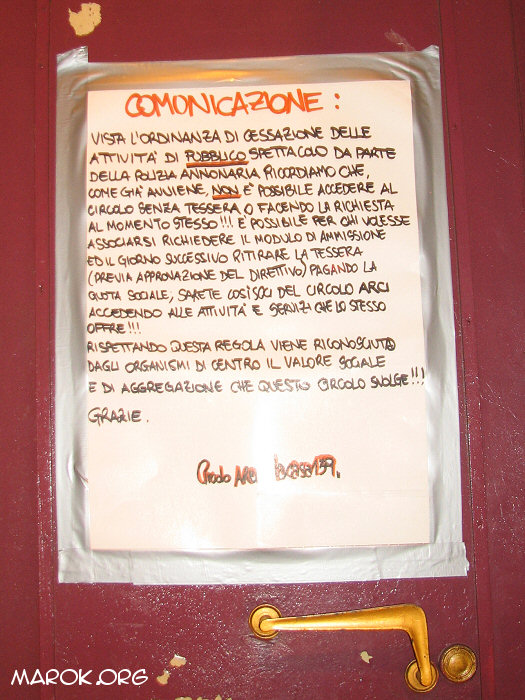 COMUNICAZIONE :
VISTA L'ORDINANZA DI CESSAZIONE DELLE
ATTIVITA' DI PUBBLICO SPETTACOLO DA PARTE
DELLA POLIZIA ANNONARIA RICORDIAMO CHE,
COME GIA' AVVIENE, NON E' POSSIBILE ACCEDERE AL
CIRCOLO SENZA TESSERA O FACENDO LA RICHIESTA
AL MOMENTO STESSO!!! E' POSSIBILE PER CHI VOLESSE
ASSOCIARSI RICHIEDERE IL MODULO DI AMMISSIONE
ED IL GIORNO SUCCESSIVO RITIRARE LA TESSERA
(PREVIA APPROVAZIONE DEL DIRETTIVO) PAGANDO LA
QUOTA SOCIALE, SARETE COSI' SOCI DEL CIRCOLO ARCI
ACCEDENDO ALLE ATTIVITA' E SERVIZI CHE LO STESSO
OFFRE!!!
RISPETTANDO QUESTA REGOLA VIENE RICONOSCIUTO
DAGLI ORGANISMI DI CENTRO IL VALORE SOCIALE
E DI AGGREGAZIONE CHE QUESTO CIRCOLO SVOLGE!!!
GRAZIE.
Circolo
MAROK.ORG